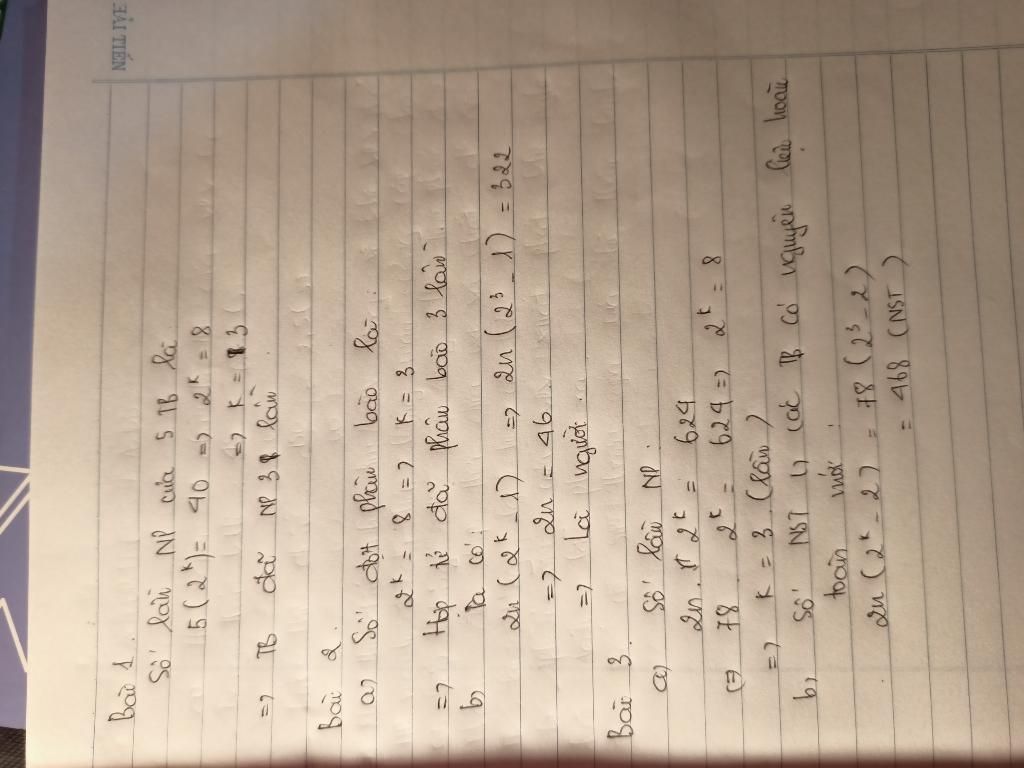 HẢI TIẾN
Bài 1.
Số lần NP của 5 TB là.
5 (2^k) = 40 => 2^k = 8
=> k = 3
=> TB đã NP 3 lần
Bài 2.
a, Số đợt phân bào là:
2^k = 8 => k = 3
=> Hợp tử đã phân bào 3 lần
b, Ta có:
2n (2^k - 1) => 2n (2^3 - 1) = 322
=> 2n = 46.
=> Là người.
Bài 3.
a, Số lần NP.
2n. 2^k = 624
<=> 78 2^k = 624 => 2^k = 8
=> k = 3 (lần)
b, Số NST các TB có nguyên liệu hoàn
toàn mới:
2n (2^k - 2) = 78 (2^3 - 2)
= 468 (NST)